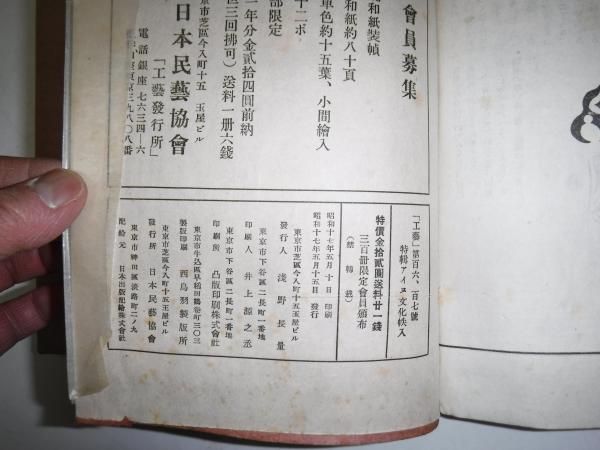 會員募集
和紙裝幀
和紙約八十頁
單色約十五葉、小間繪入
十二ポ
部限定
一年分金貳拾四圓前納
三回拂可）送料一册六錢
京市芝區今入町十五 玉屋ビル
日本民藝協會
「工藝發行所」
電話銀座七六三四―六
「工藝」第百六、百七號
特輯アイヌ文化帙入
特價金拾貳圓送料廿一錢
三百冊限定會員頒布
（禁轉載）
昭和十七年五月十日印刷
昭和十七年五月十五日發行
東京市芝區今入町十五玉屋ビル
發行人 淺野長量
東京市下谷區二長町一番地
印刷人 井上源之丞
東京市下谷區二長町一番地
印刷所 凸版印刷株式會社
東京市牛込區早稻田鶴卷町三〇三
製版印刷 西鳥羽製版所
東京市芝區今入町十五玉屋ビル
發行所 日本民藝協會
東京市神田區淡路町二ノ九
配給元 日本出版配給株式會社